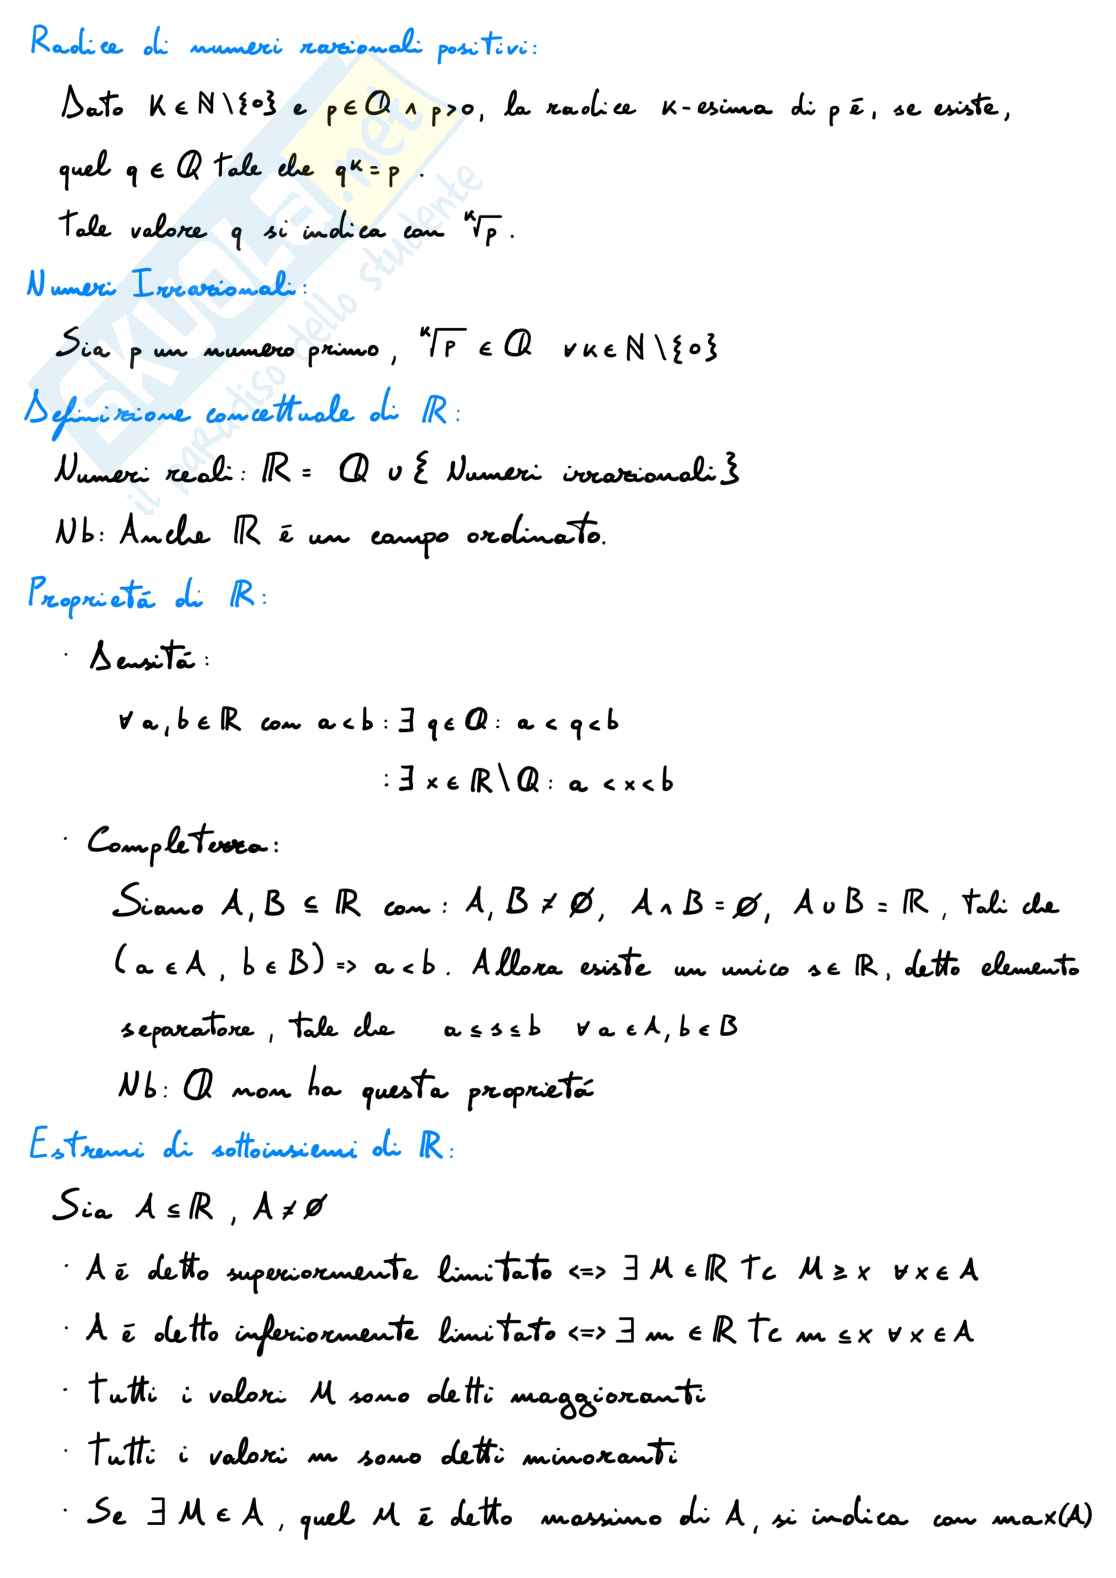 Radice di numeri razionali positivi:
Dato K ∈ ℕ \ {0} e p ∈ ℚ ∧ p>0, la radice K-esima di p é, se esiste,
quel q ∈ ℚ tale che qᴷ = p .
Tale valore q si indica con ᴷ√p .
Numeri Irrazionali:
Sia p un numero primo, ᴷ√p ∈ ℚ ∀ K ∈ ℕ \ {0}
Definizione concettuale di ℝ:
Numeri reali: ℝ = ℚ ∪ { Numeri irrazionali}
Nb: Anche ℝ é un campo ordinato.
Proprietá di ℝ:
· Densitá:
∀ a, b ∈ ℝ con a < b : ∃ q ∈ ℚ : a < q < b
: ∃ x ∈ ℝ \ ℚ : a < x < b
· Completezza:
Siano A, B ⊆ ℝ con : A, B ≠ ∅, A ∩ B = ∅, A ∪ B = ℝ, tali che
(a ∈ A, b ∈ B) => a < b. Allora esiste un unico s ∈ ℝ, detto elemento
separatore, tale che a ≤ s ≤ b ∀ a ∈ A, b ∈ B
Nb: ℚ non ha questa proprietá
Estremi di sottoinsiemi di ℝ:
Sia A ⊆ ℝ, A ≠ ∅
· A é detto superiormente limitato <=> ∃ M ∈ ℝ Tc M ≥ x ∀ x ∈ A
· A é detto inferiormente limitato <=> ∃ m ∈ ℝ Tc m ≤ x ∀ x ∈ A
· Tutti i valori M sono detti maggioranti
· Tutti i valori m sono detti minoranti
· Se ∃ M ∈ A, quel M é detto massimo di A, si indica con max(A)
SKUOLA.net
il paradiso dello studente